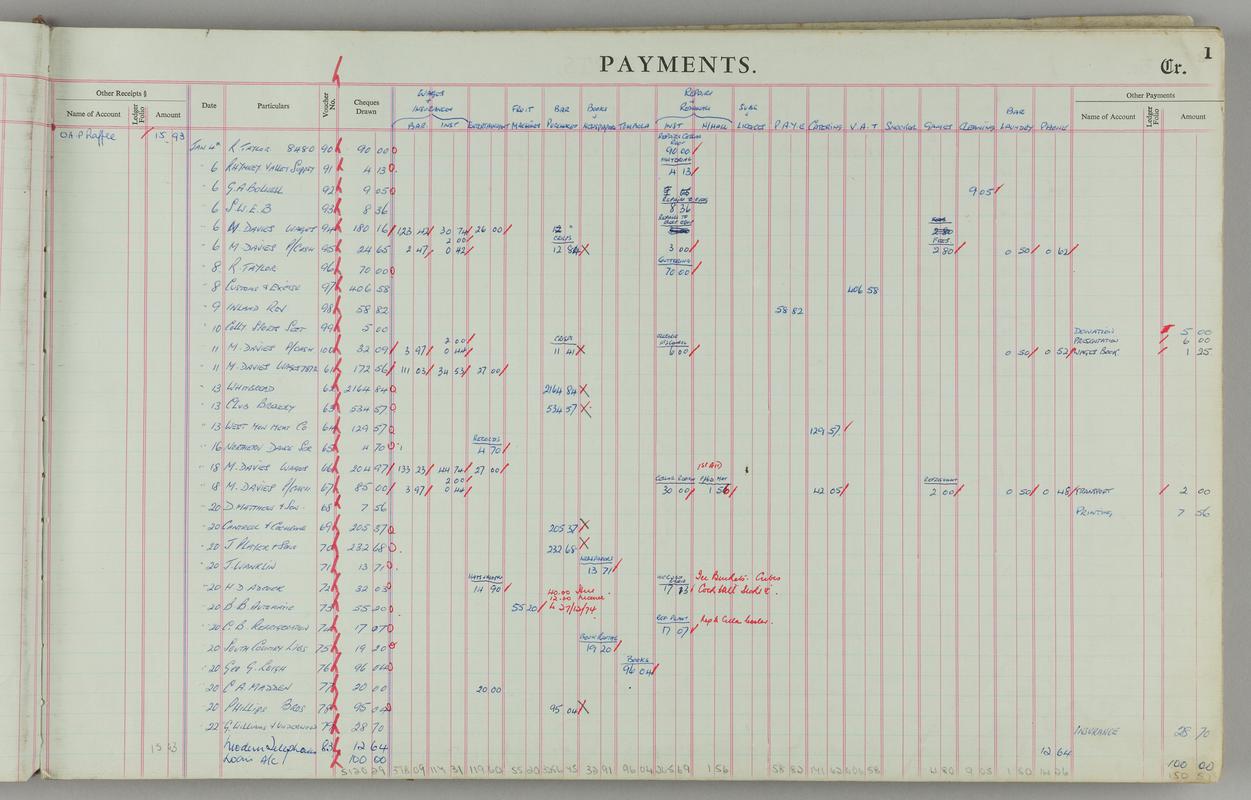 PAYMENTS.
Cr. 1
Other Receipts §
Name of Account Ledger Folio Amount
Date Particulars Voucher No. Cheques Drawn
Other Payments
Name of Account Ledger Folio Amount
WAGES + INSURANCE BAR INST ENTERTAINMENT FRUIT MACHINES BAR PURCHASES BOOKS + NEWSPAPERS TOMBOLA REPAIRS + RENEWALS INST N/HALL SUBS LICENCES P.A.Y.E CATERING V.A.T SNOOKER GAMES CLEANING BAR LAUNDRY PHONE
O.A.P Raffle 15 93
JAN 4th R TAYLOR 8480 90 90 00 90 00
6 RHYMNEY VALLEY SUPPLY 91 4 13 4 13
6 G.A BOLWELL 92 9 05 9 05
6 S.W.E.B 93 8 36 8 36
6 M DAVIES WAGES 94 180 16 123 42 30 74 26 00
6 M. DAVIES P/CASH 95 24 65 2 47 2 00 0 42 CRISPS 12 84 3 00 FEES 2 80 0 50 0 62
8 R TAYLOR 96 70 00 GUTTERING 70 00
8 CUSTOMS & EXCISE 97 406 58 406 58
9 INLAND REV 98 58 82 58 82
10 99 5 00 DONATION 5 00
11 M. DAVIES P/CASH 100 32 09 3 97 2 00 0 44 CRISPS 11 41 6 00 0 50 0 52 PRESENTATION 6 00 WAGES BOOK 1 25
11 M. DAVIES WAGES 61 172 56 111 03 34 53 27 00
13 WHITBREAD 62 2164 84 2164 84
13 CLUB BREWERY 63 534 57 534 57
13 WEST MON MEAT CO 64 129 57 129 57
16 NORTHERN DANCE SER 65 4 70 RECORDS 4 70
18 M. DAVIES WAGES 66 204 97 133 23 44 74 27 00
18 M. DAVIES P/CASH 67 85 00 3 97 2 00 0 44 30 00 1st AID 1 56 42 05 REFRESHMENT 2 00 0 50 0 48 TRANSPORT 2 00
20 D. MATTHEWS + SON 68 7 56 PRINTING 7 56
20 CANTRELL & COCHRANE 69 205 37 205 37
20 J PLAYER + SONS 70 232 68 232 68
20 J. WANKLIN 71 13 71 NEWSPAPERS 13 71
20 72 32 03 14 90 17 13 Ice Buckets. Cubes
20 B.B. AUTOMATIC 73 55 20 55 20 40.00 Hire 12.00 Licence 27/12/74
20 C.B. REFRIGERATION 74 17 07 REF PLANT 17 07 Rep to Cellar Cooler.
20 SOUTH COUNTRY LIBS 75 19 20 19 20
20 GEO G. LEIGH 76 96 04 BOOKS 96 04
20 C A. MADDEN 77 20 00 20 00
20 PHILLIPS BROS 78 95 04 95 04
22 G. WILLIAMS & UNDERWOOD 79 28 70 INSURANCE 28 70
15 93 Modern Telephones 83 12 64 12 64
Loan A/c 100 00 100 00
119 60 55 20 32 91 96 04 1 56 58 82 406 58 4 80 9 05 1 50